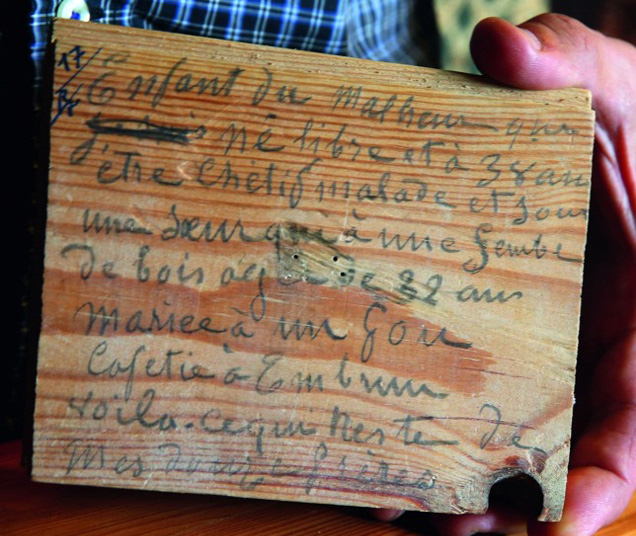 17/
Enfant du malheur que
né libre et à 38 an
être Chétif malade et sour
une Sœur qui à une Jembe
de bois agée de 32 ans
Mariee à un fou
Cafetié à Embrun
voila. cequi Reste de
Mes douze frères